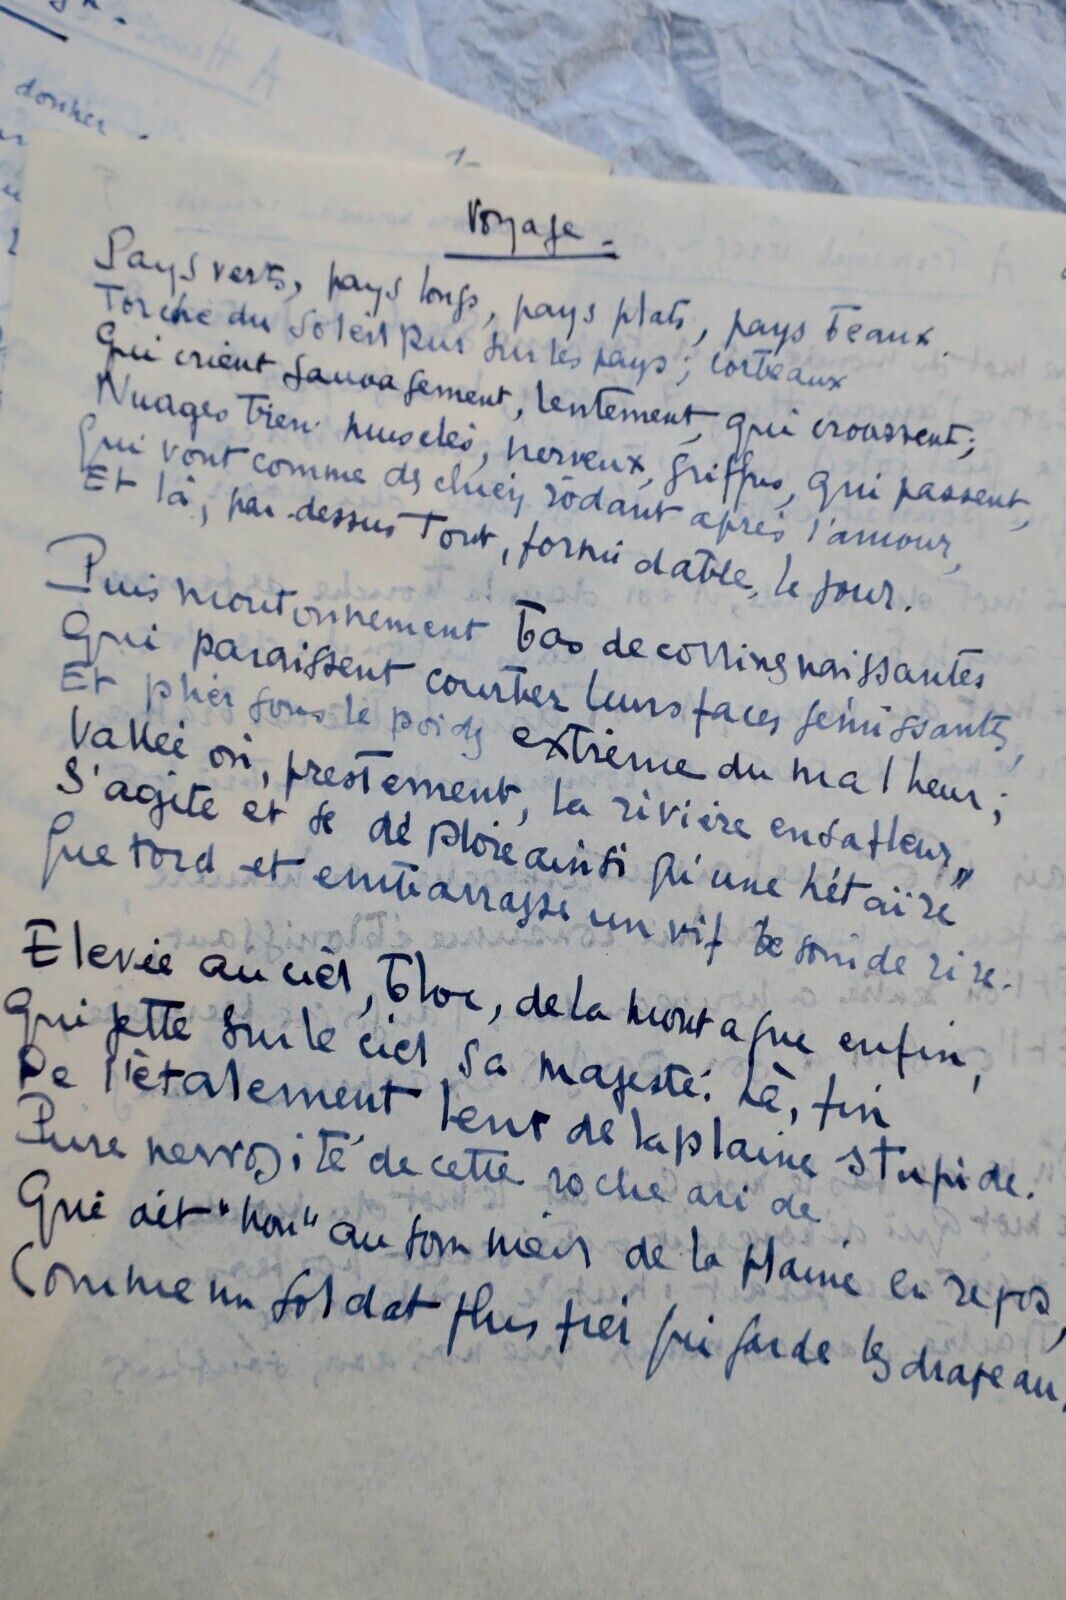 donner.
1-
Voyage -
Pays verts, pays longs, pays plats, pays beaux.
Torche du soleil pur sur les pays; corbeaux
Qui crient sauvagement, lentement, qui croassent;
Nuages bien musclés, nerveux, griffus, qui passent,
Qui vont comme des chiens rôdant après l'amour,
Et là, par-dessus tout, formidable, le jour.
Puis moutonnement bas de collines naissantes
Qui paraissent courber leurs faces gémissantes,
Et plier sous le poids extrême du malheur;
Vallée où, prestement, la rivière
S'agite et se déploie ainsi qu'une hétaïre
Que tord et embarrasse un vif besoin de rire.
Elevée au ciel, bloc, de la montagne enfin,
Qui jette sur le ciel sa majesté. Là, fin
De l'étalement lent de la plaine stupide.
Pure nervosité de cette roche aride
Qui dit "non" au sommeil de la plaine en repos,
Comme un soldat plus fier qui garde les drapeaux.